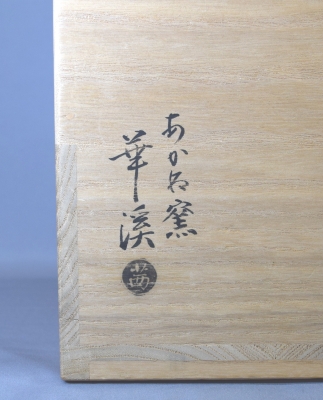 あかね窯
華溪